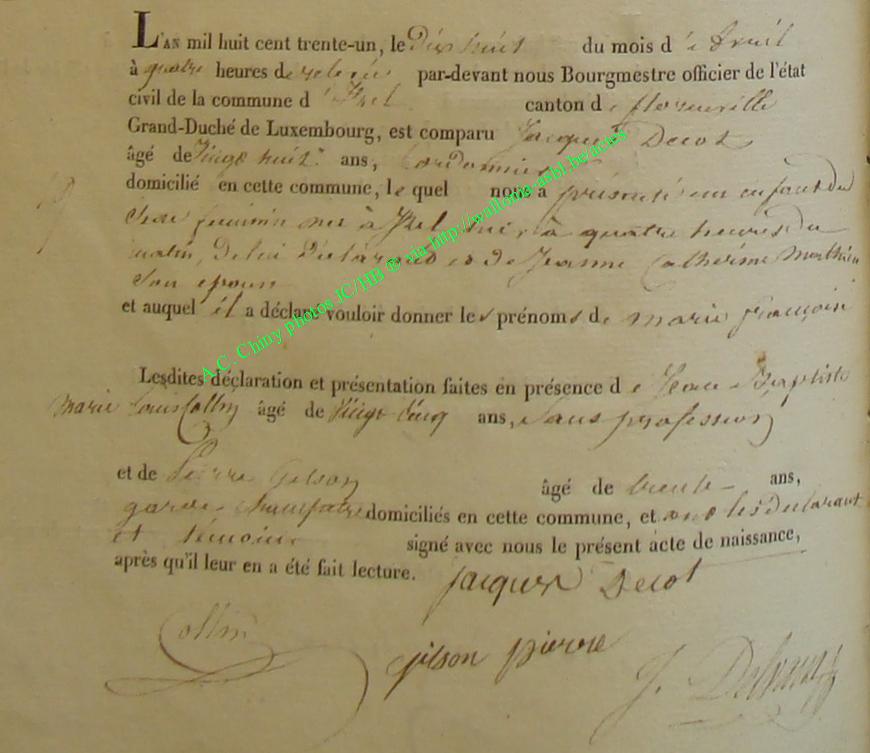 L'AN mil huit cent trente-un, le dix huit du mois d'Avril
à quatre heures de relevée par-devant nous Bourgmestre officier de l'état
civil de la commune d'Izel canton de florenville
Grand-Duché de Luxembourg, est comparu Jacques Decot
âgé de Vingt huit ans, Cordonnier
domicilié en cette commune, lequel nous a présenté un enfant du
sexe feminin né à Izel hier à quatre heures du
matin, de lui déclarant et de Jeanne Catherine Mathieu
Son epouse
et auquel il a déclaré vouloir donner les prénoms de marie françoise
Lesdites déclaration et présentation faites en présence de Jean Baptiste
marie Louis Collin âgé de Vingt cinq ans, Sans profession
et de Pierre Gilson âgé de trente ans,
garde champatre domiciliés en cette commune, et ont les declarant
et témoins signé avec nous le présent acte de naissance,
après qu'il leur en a été fait lecture. jacques Decot
Collin
gilson pierre
J.
A.C. Chiny photos JC/HB ® via http://wallonia-asbl.be/actes